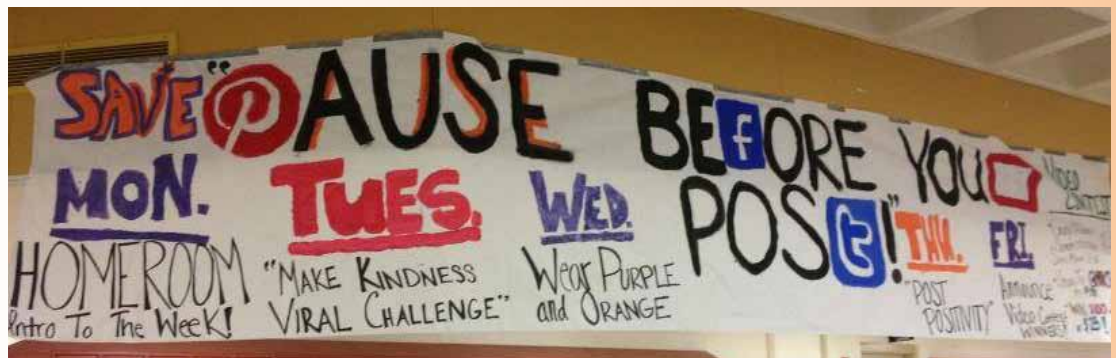 SAVE "PAUSE BEFORE YOU
POST!"
MON.
HOMEROOM
Intro To The Week!
TUES.
"MAKE KINDNESS
VIRAL CHALLENGE"
WED.
Wear PURPLE
and ORANGE
THU.
"POST
POSITIVITY"
FRI.
Announce
Video Contest
WINNERS!
VIDEO
CONTEST